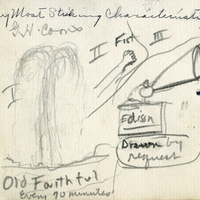 My Most Striking Characteristic
G.H. Coons
I
II
Fist
III
Edison
Drawn by
request
Old Faithful
Every 70 minutes